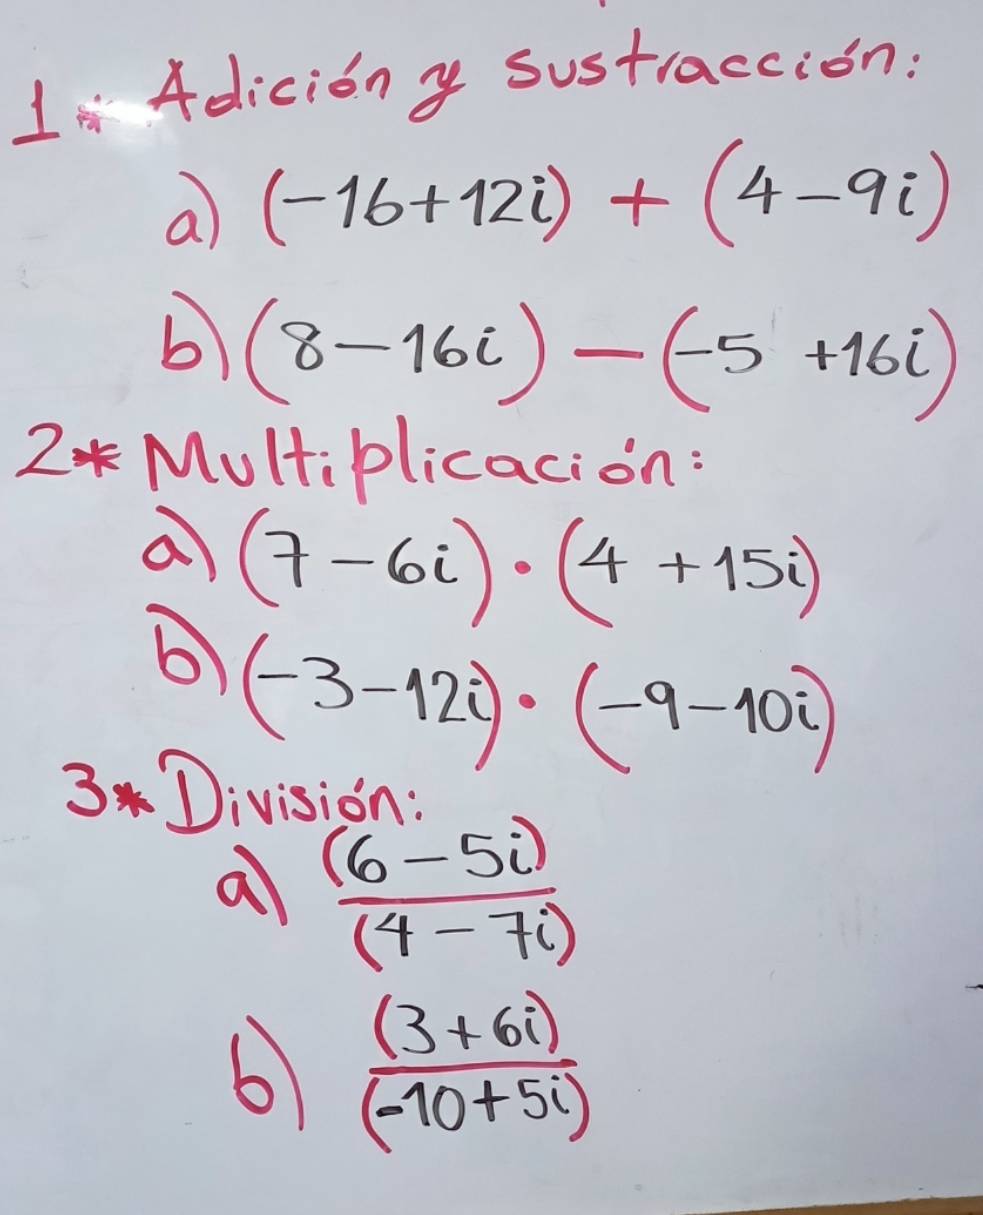 1* Adición y sustracción:
a) (-16+12i) + (4-9i)
b) (8-16i) - (-5 +16i)
2* Multiplicación:
a) (7-6i)·(4 +15i)
b) (-3-12i)·(-9-10i)
3* División:
a) (6-5i)
(4-7i)
b) (3+6i)
(-10+5i)